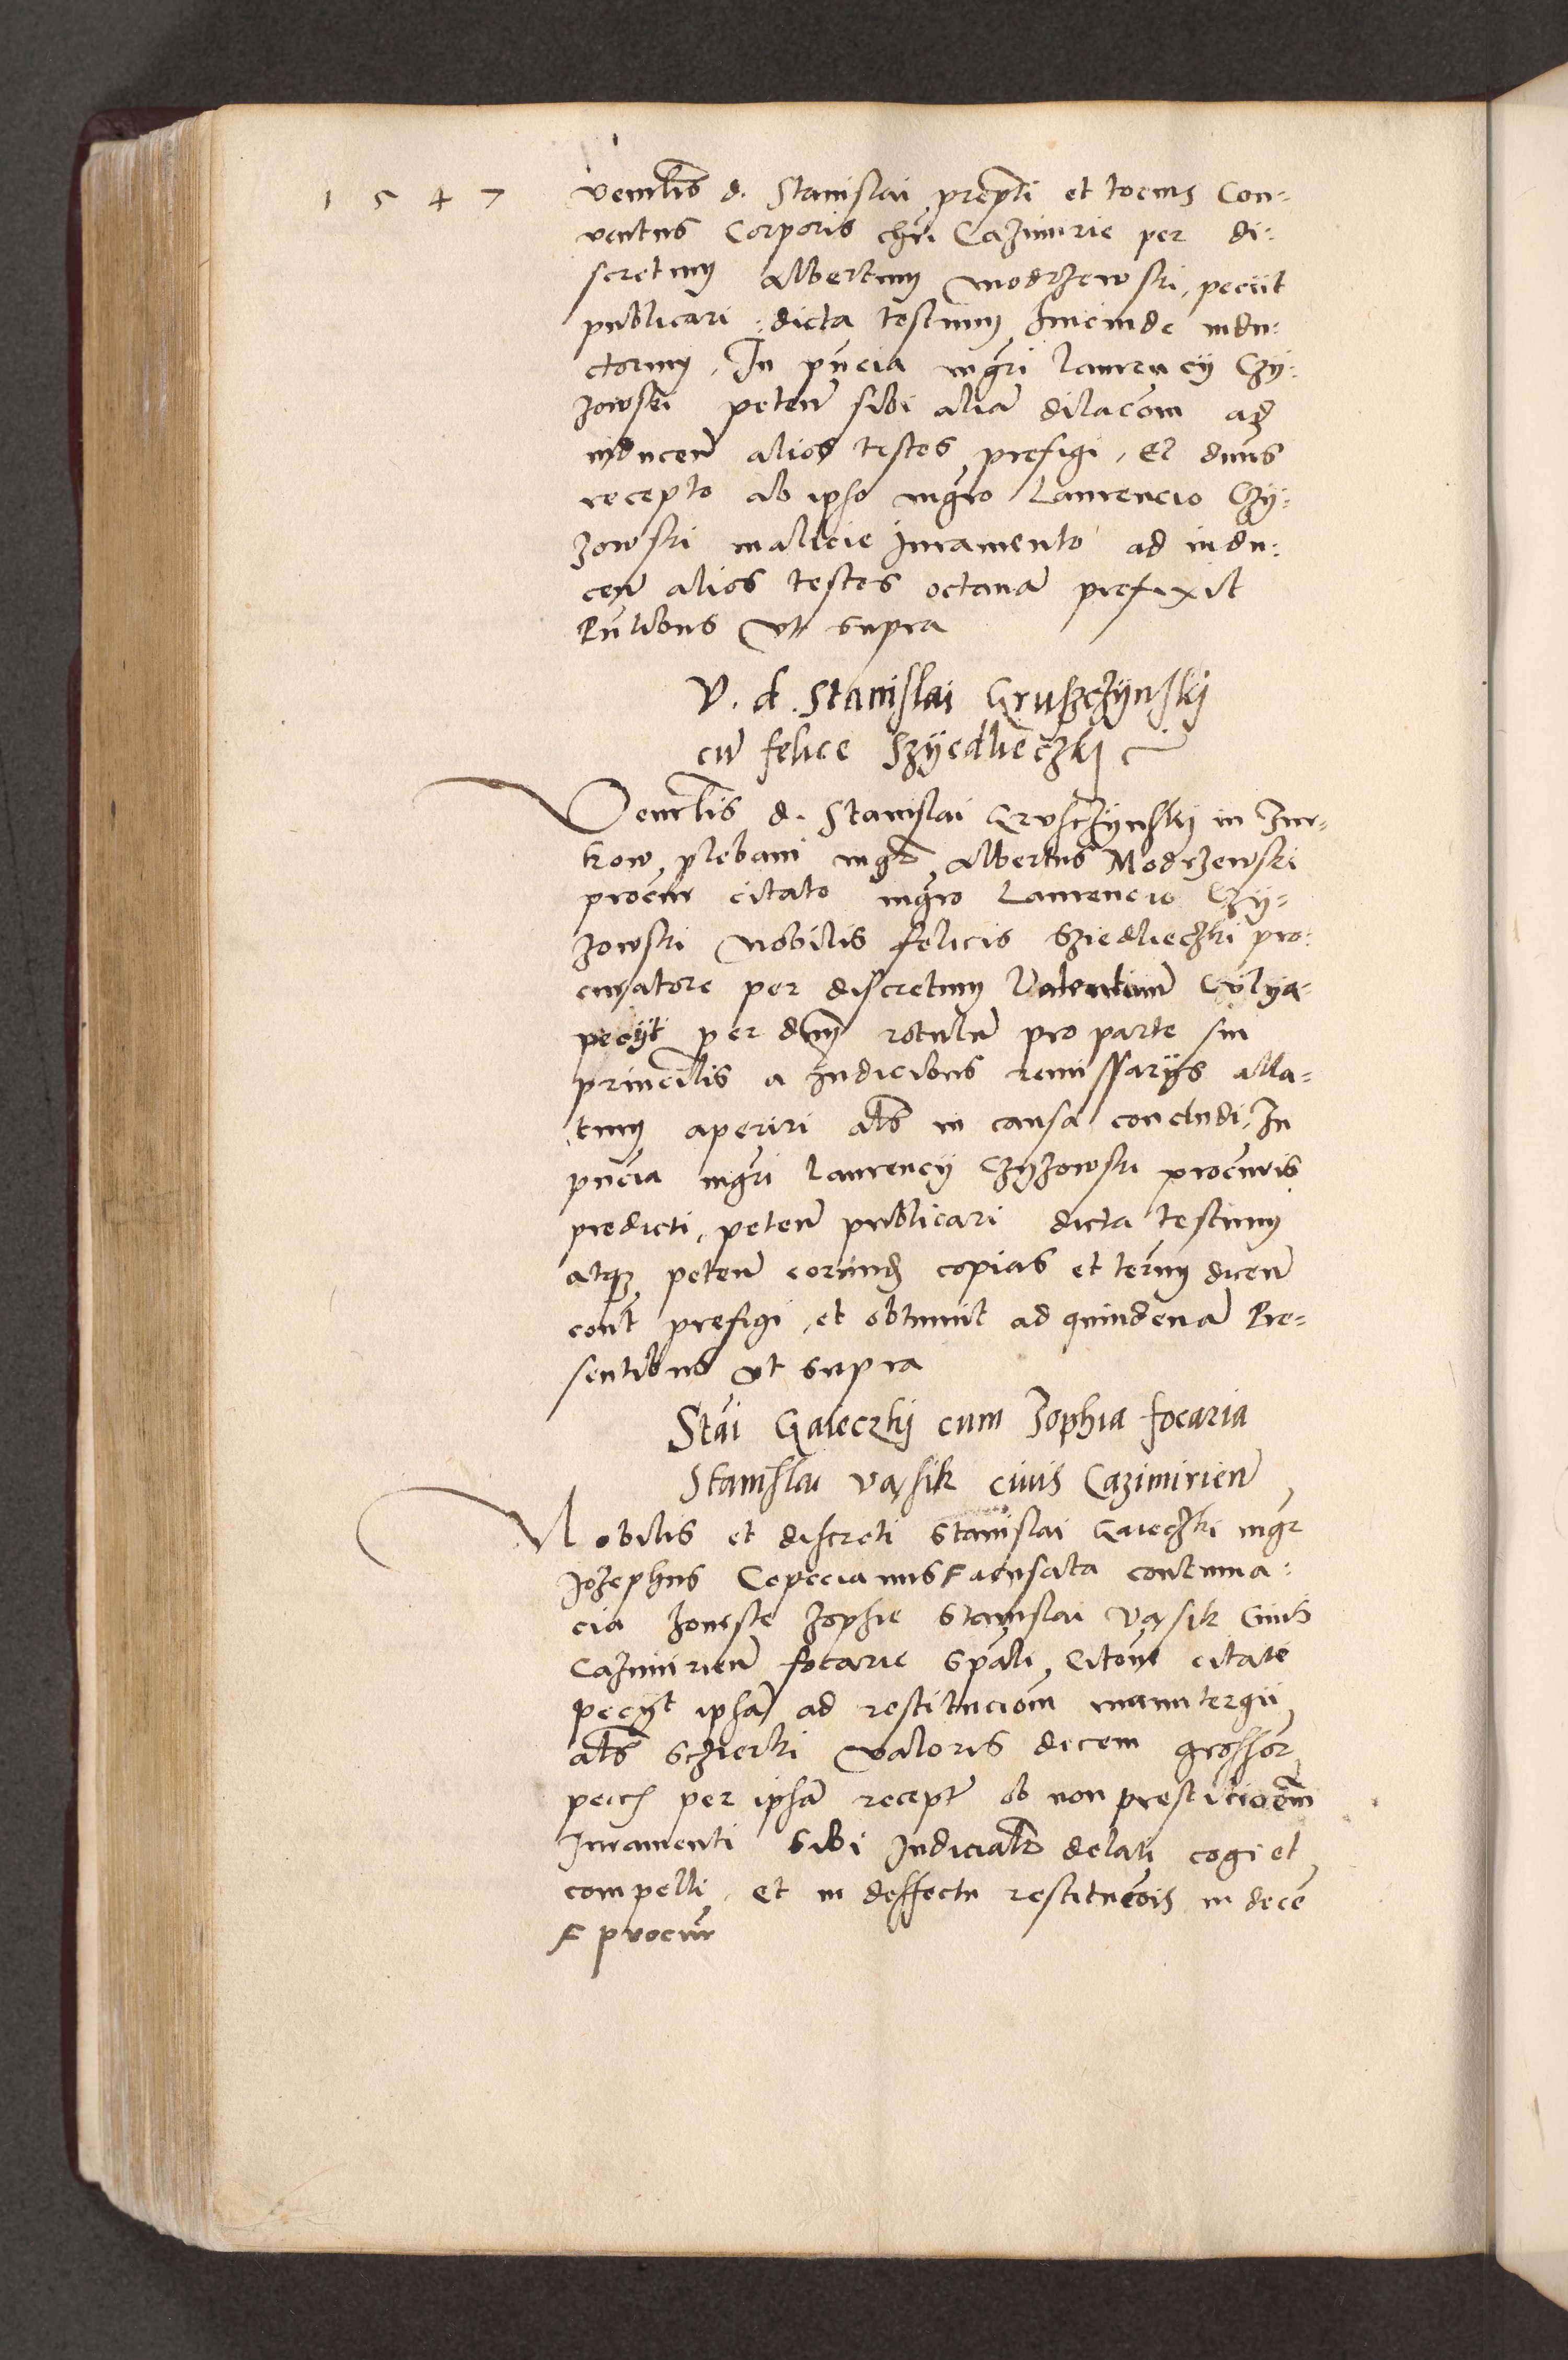 1 5 4 7
venerlis d. Stanislai prepti et tocius Con-
ventus Corporis chri Cazimirie per di-
scretum Albertum Modrzewski, peciit
publicari dicta testium hincinde indu-
ctorum, In pñcia mgri Laurencij Czy-
zowski peten̄ sibi aliā dilacōm ad
inducen̄ alios testes prefigi, Et dnus
recepto ab ipso mgro Laurencio Czy-
zowski malicie Juramento ad indu-
cen̄ alios testes octavā prefixit
Pn̄tibus vt supra
V. d. Stanislai Grusczynskij
cū felice Szyedlieczkj
Venerlis d. Stanislai Gruscżynskij in Jur-
kow plebani mgr Albertus Modrzewski
procur citato mgro Laurencio Czy-
zowski Nobilis felicis Sziedlieczki pro-
curatore per discretum Valentinū
pecijt per dnm̄ rotulū pro parte sui
princilis a Judicibus remissarijs alla-
tum aperiri als in causa concludi, In
pn̄cia mgri Laurencij Czyzowski procuris
predicti, peten̄ publicari dicta testium
atqz peten̄ eorundz copias et term̄ dicen̄
cont̄ prefigi, et obtinuit ad quindenā Pre-
sentibus vt supra
Stāi Gaieczkij cum Zophia focaria
Stanislai Vasik civis Cazimirien̄
Nobilis et discreti Stanislai Gaieczki mgr
Jozephus F acusata contuma-
cia honeste Zophie Stanislai Vasik Civis
Cazimirien̄ focarie Spāli Citōne citate
pecijt ipsā ad restitucīom manutergii
als Sczierki valoris decem grossor̄
per ipsā recept̄ ob non presticīoem
Juramenti Sibi Judicialr̄ delati cogi et
compelli, et in deffectu restitucōis in decē
F procur